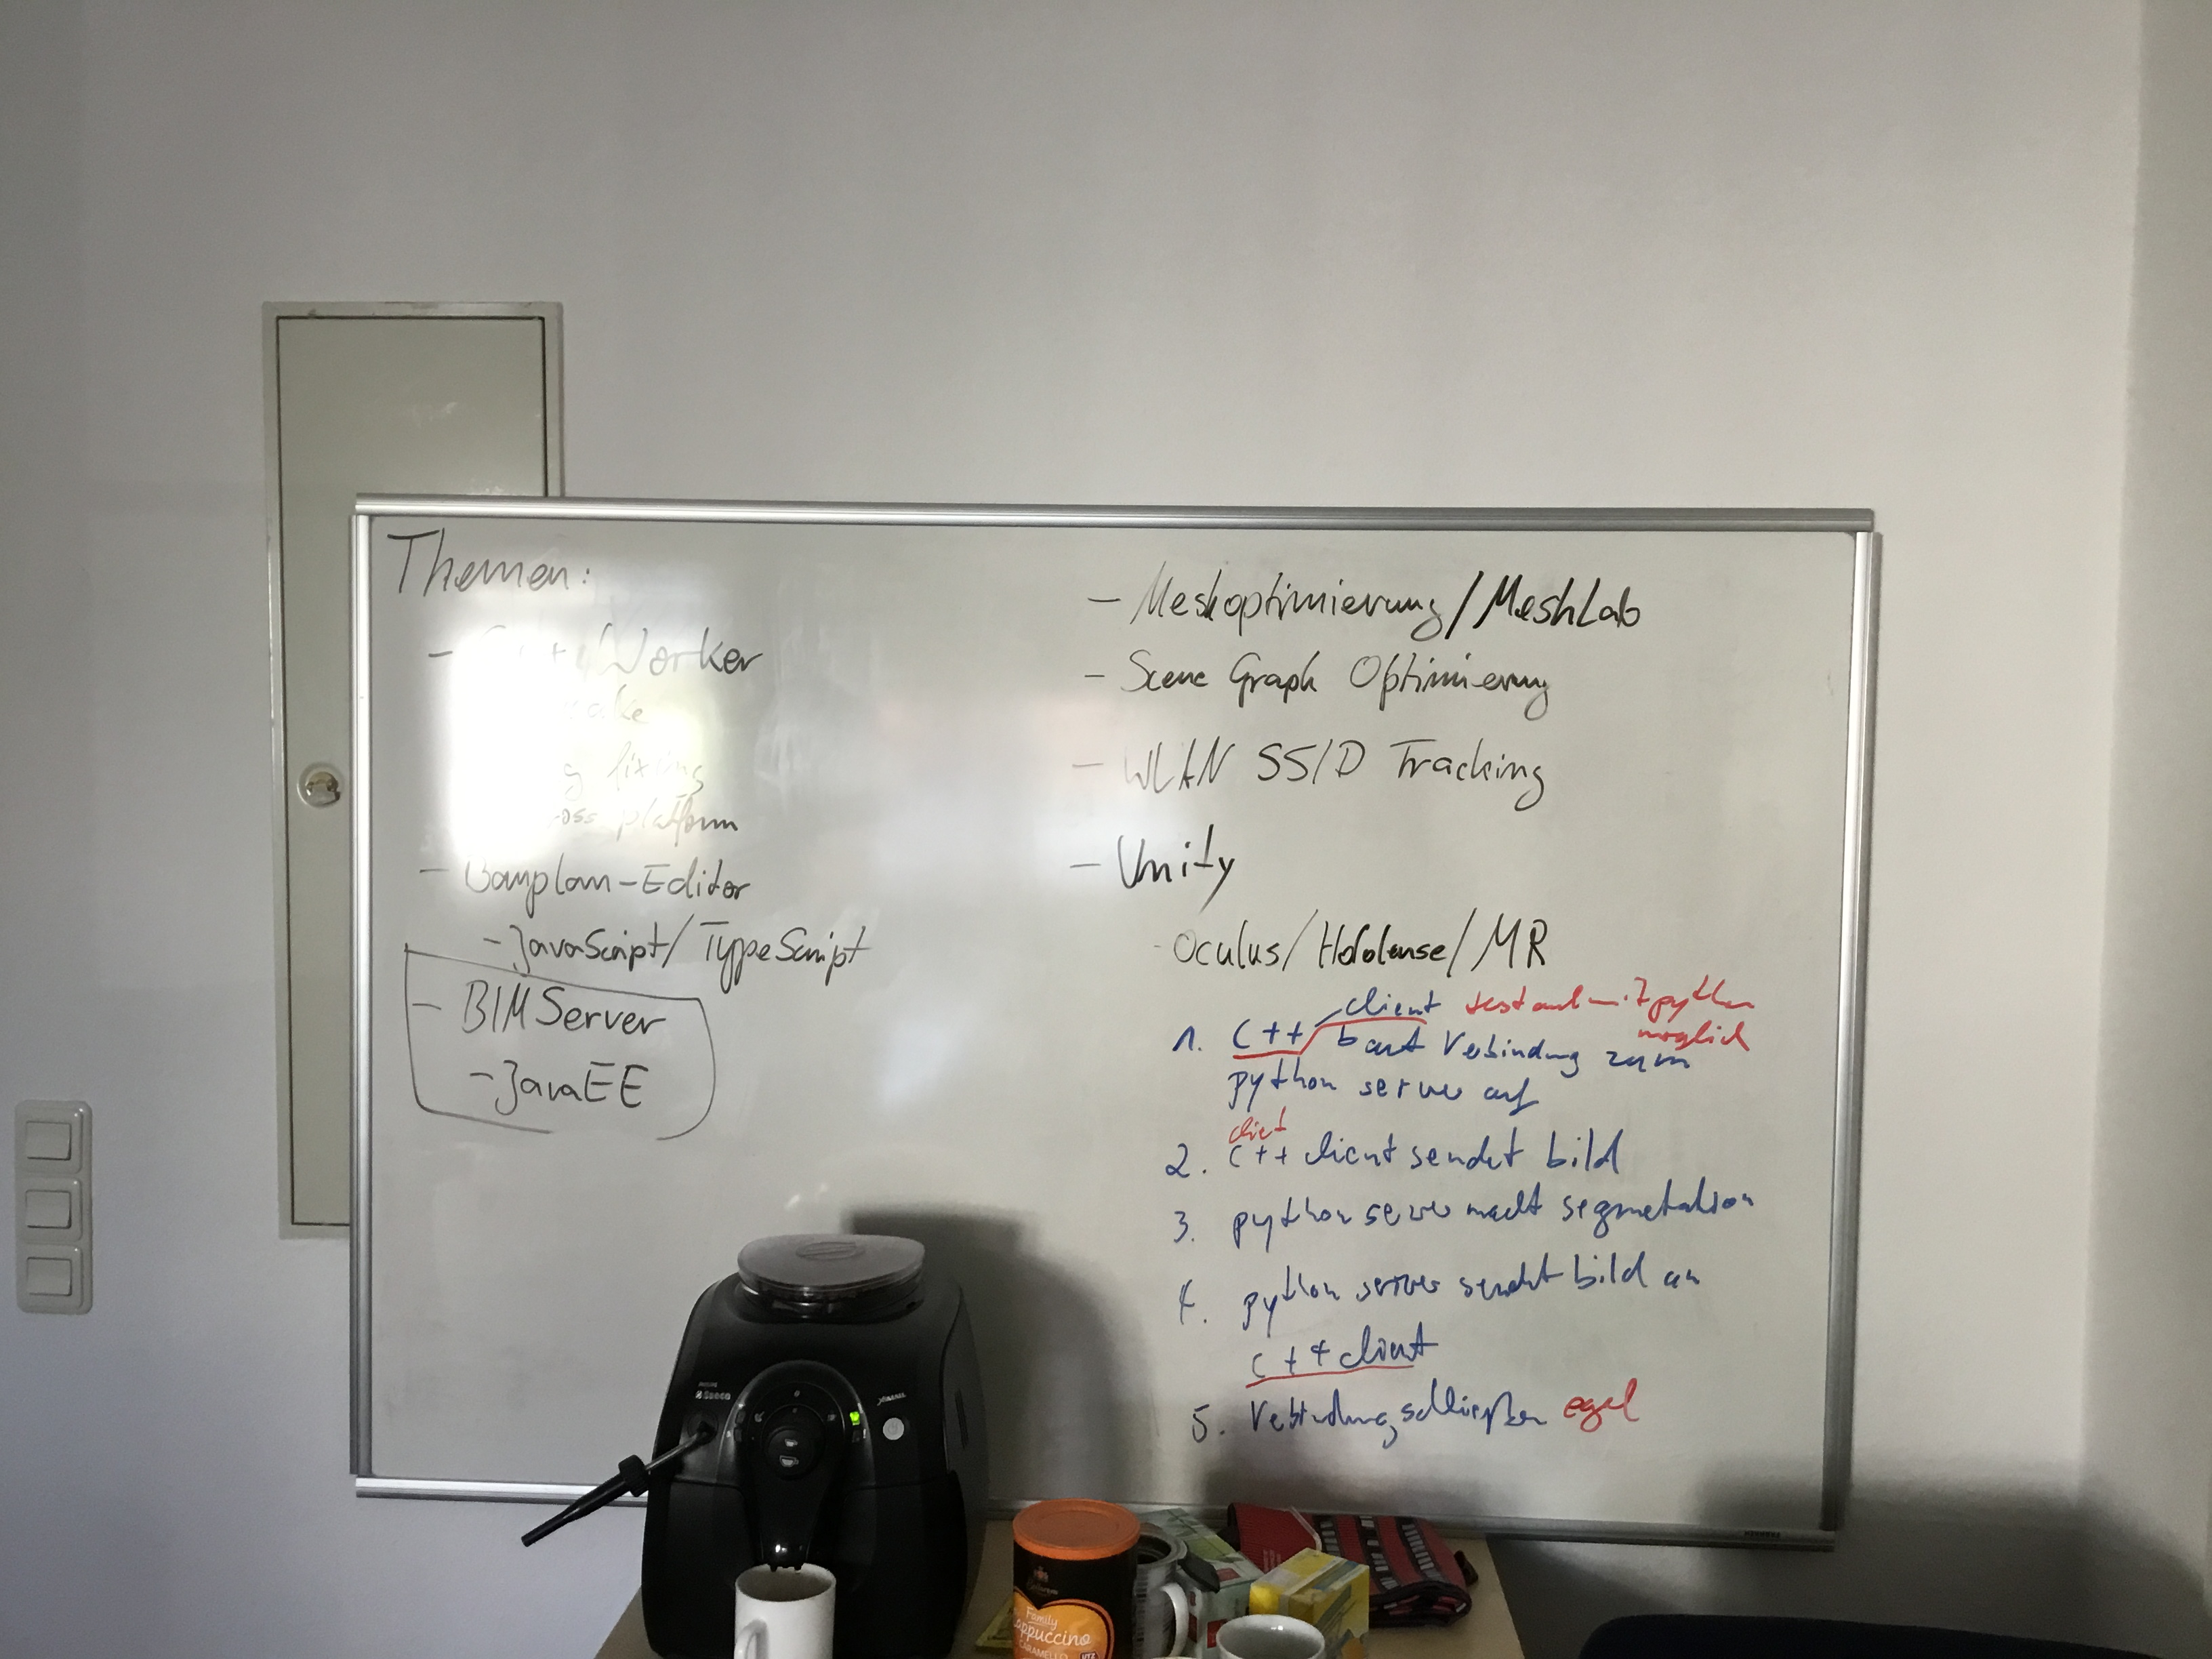 Themen:
- Worker
fixing
platform
- Bauplan-Editor
- JavaScript/TypeScript
- BIMServer
- JavaEE
- Meshoptimierung/MeshLab
- Scene Graph Optimierung
- WLAN SSID Tracking
- Unity
- Oculus/Hololense/MR
client test auch mit python
möglich
1. C++ baut Verbindung zum
python server auf
client
2. C++ client sendet bild
3. python server macht segmetation
4. python server sendet bild an
C++ client
5. Verbindung schließen egal
Saeco
Family
Cappuccino
CARAMELLO
UTZ